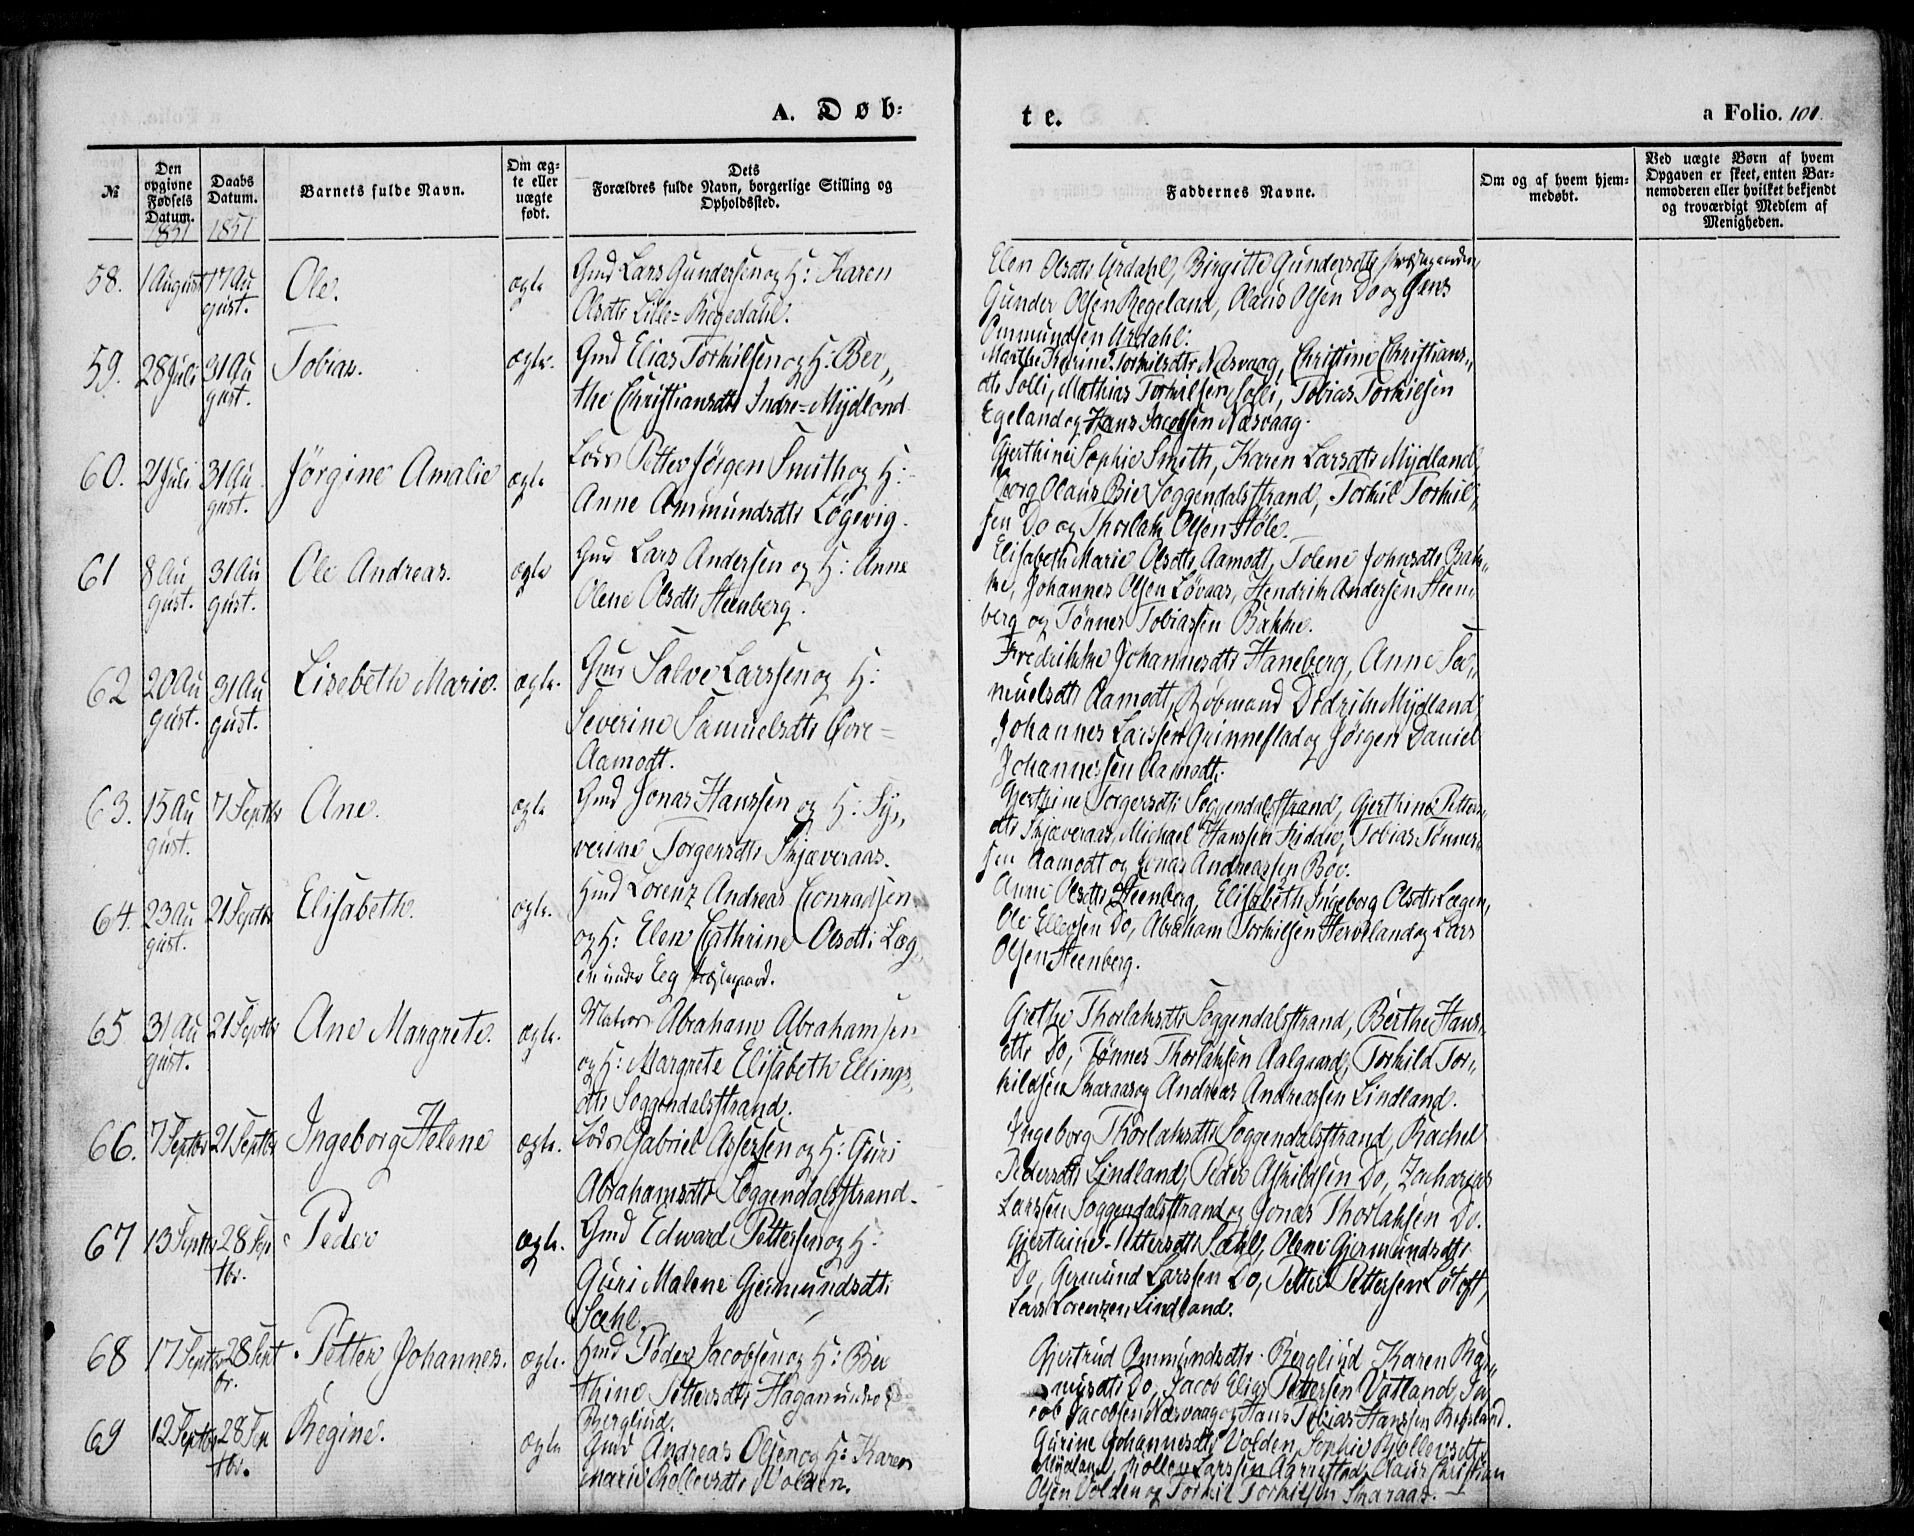 A. Døb=
te.
a Folio. 101.
№
Den opgivne Fødsels Datum.
1851
Daabs Datum.
1851
Barnets fulde Navn.
Om ægte eller uægte født.
Dets Forældres fulde Navn, borgerlige Stilling og Opholdssted.
Faddernes Navne.
Om og af hvem hjemmedøbt.
Ved uægte Børn af hvem Opgaven er skeet, enten Barnemoderen eller hvilket bekjendt og troværdigt Medlem af Menigheden.
58. 1 August 17 August. Ole. ægte
Gmd Lars Gundersen og H: Karen
Olsdtr Lille=Regedahl.
Elen Olsdtr Urdahl, Birgitte Gundersdtr
Gunder Olsen Regeland, Olaus Olsen Do og Jens
Ommundsen Urdahl.
59. 28 Juli 31 August. Tobias. ægte.
Gmd Elias Torkilsen og H: Ber„
the Christiansdtr Indre=Mydland
Marthe Karine Torkilsdtr Næsvaag, Christine Christians„
dtr Solli, Mathias Torkilsen Solli, Tobias Torkilsen
Egeland og Hans Jacobsen Næsvaag.
60. 21 Juli 31 August. Jørgine Amalie ægte
Lods Petter Jørgen Smith og H:
Anne Ommundsdtr Løgevig.
Gjerthine Sophie Smith, Karen Larsdtr Mydland,
Georg Olaus Bie Soggendalsstrand, Torkil Torkil„
sen Do og Thorlak Olsen Støle.
61 8 August. 31 August. Ole Andreas. ægte
Gmd Lars Andersen og H: Anne
Olene Olsdtr Steenberg.
Elisabeth Marie Olsdtr Aamodt, Tolene Johnsdtr Bak„
ke, Johannes Olsen Løvaas, Hendrik Andersen Steen„
berg og Tønnes Tobiassen Bakke.
62 20 August. 31 August. Lisebeth Marie. ægte.
Gmd Salve Larssen og H:
Severine Samuelsdtr Øvre=
Aamodt.
Fredrikke Johannesdtr Haneberg, Anne Sa„
muelsdtr Aamodt, Didrik Mydland
Johannes Larssen Grinneflad og Jørgen Daniel
Johannessen Aamodt.
63. 15 August. 7 Septbr Ane. ægte
Gmd Jonas Hanssen og H: Sy„
verine Torgersdtr Skjæveraas.
Gjerthine Torgersdtr Soggendalsstrand, Gjerthine Petters„
dtr Skjæveraas, Michael Hanssen Tobias Tønnes„
sen Aamodt og Jonas Andreassen Bøe.
64. 23 August. 21 Septbr Elisabeth. ægte.
Hmd Lorenz Andreas Conradsen
og H: Elen Cathrine Olsdtr Læg„
en under Eeg Præstegaard.
Anne Olsdtr Steenberg, Elisabeth Ingeborg Olsdtr Lægen,
Ole Ellefsen Do, Abraham Torkilsen Herveland og Lars
Olsen Steenberg.
65 31 August. 21 Septbr Ane Margrete. ægte.
Matros Abraham Abrahamsen
og H: Margrete Elisabeth Ellings„
dtr Soggendalsstrand.
Grethe Thorlaksdtr Soggendalsstrand, Berthe Hans„
dtr Do, Tønnes Thorlaksen Aalgaard, Torkild Tor„
kildsen Skaraas og Andreas Andreassen Lindland.
66. 7 Septbr 21 Septbr Ingeborg Helene ægte.
Lods Gabriel Assersen og H: Guri
Abrahamsdtr Soggendalsstrand.
Ingeborg Thorlaksdtr Soggendalsstrand, Rachel
Pedersdtr Lindland, Peder Askildsen Do, Zacharias
Larssen Soggendalsstrand og Jonas Thorlaksen Do.
67 13 Septbr 28 Septbr. Peder ægte.
Gmd Edward Pettersen og H:
Guri Malene Gjermundsdtr
Sæhl.
Gjerthine Pettersdtr Sæhl, Olene Gjermundsdtr
Do, Germund Larssen Do, Petter Pettersen Lotoft,
Lars Lorenzen Lindland.
68 17 Septbr 28 Septbr. Petter Johannes. ægte.
Hmd Peder Jacobsen og H: Ber
thine Pettersdtr Hagan under
Berglind.
Gjertrud Ommundsdtr Berglind, Karen Ras„
musdtr Do, Jacob Elias Pettersen Vatland, Ja
cob Jacobsen Næsvaag og Hans Tobias Hanssen Refsland.
69 12 Septbr 28 Septbr. Regine. ægte
Gmd Andreas Olsen og H: Karen
Marie Rollevsdtr Volden.
Gurine Johannesdtr Volden, Sophie Rollevsdtr
Mydland, Rollev Larssen Aarrestad, Olaus Christian
Olsen Volden og Torkil Torkilsen Skaraas.